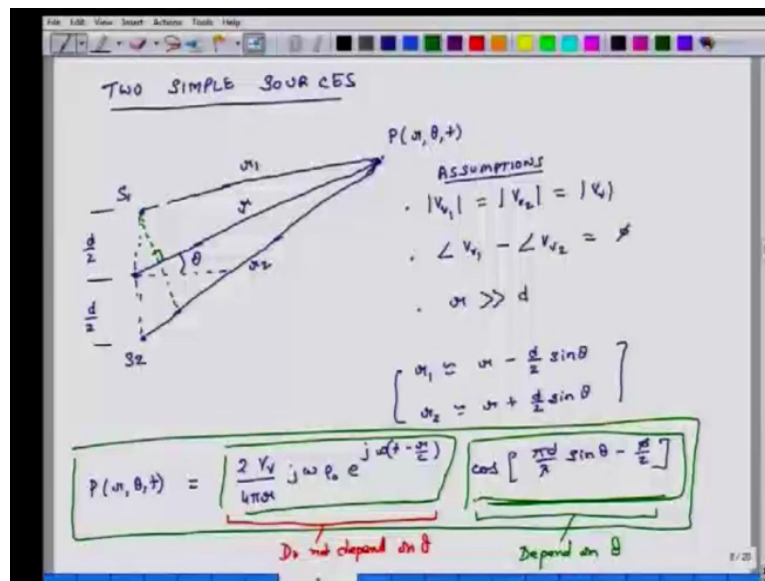 File Edit View Insert Actions Tools Help
TWO SIMPLE SOURCES
P(r, θ, t)
r₁
S₁
r
ASSUMPTIONS
. |Vv₁| = |Vv₂| = |Vv|
d/2
θ
r₂
. ∠Vv₁ - ∠Vv₂ = φ
d/2
. r >> d
S2
r₁ ≈ r - d/2 sinθ
r₂ ≈ r + d/2 sinθ
P(r, θ, t) = 2Vv/4πr jωρ₀ e^jω(t - r/c) cos[πd/λ sinθ - φ/2]
Do not depend on θ
Depend on θ
8/20